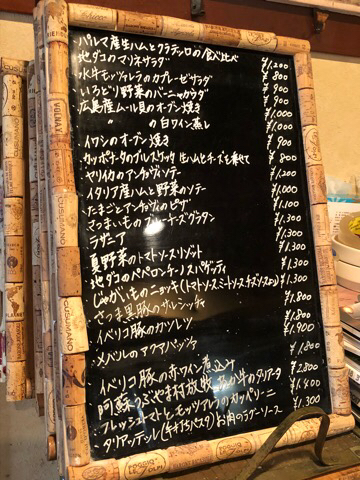 ・パルマ産生ハムとクラテッロの食べ比べ ¥1,200
地ダコのマリネサラダ ¥800
・水牛モッツァレラのカプレーゼサラダ ¥900
・いろどり野菜のバーニャカウダ ¥900
・広島産ムール貝のオーブン焼き ¥1,000
〃 の白ワイン蒸し ¥1,000
・イワシのオーブン焼き ¥900
・カッポナータのブルスケッタ 生ハムとチーズを乗せて ¥800
・ヤリイカのアンチョヴィソテー ¥1,200
・イタリア産ハムと野菜のソテー ¥1,000
・たまごとアンチョヴィのピザ ¥1,100
・さつまいものブルーチーズグラタン ¥1,300
ラザニア ¥1,300
夏野菜のトマトソースリゾット ¥1,300
・地ダコのペペロンチーノスパゲッティ ¥1,300
・じゃがいものニョッキ(トマトソース、ミートソース、チーズソース) ¥1,300
・さつま黒豚のサルシッチャ ¥1,800
・イベリコ豚のカツレツ ¥1,800
・メバルのアクアパッツァ ¥1,900
・イベリコ豚の赤ワイン煮込み ¥1,800
阿蘇うぶやま村放牧 あか牛のタリアータ ¥2,800
・フレッシュトマトとモッツァレラのカッペリーニ ¥1,400
・タリアッテッレ(手打ちパスタ)お肉のラグーソース ¥1,300